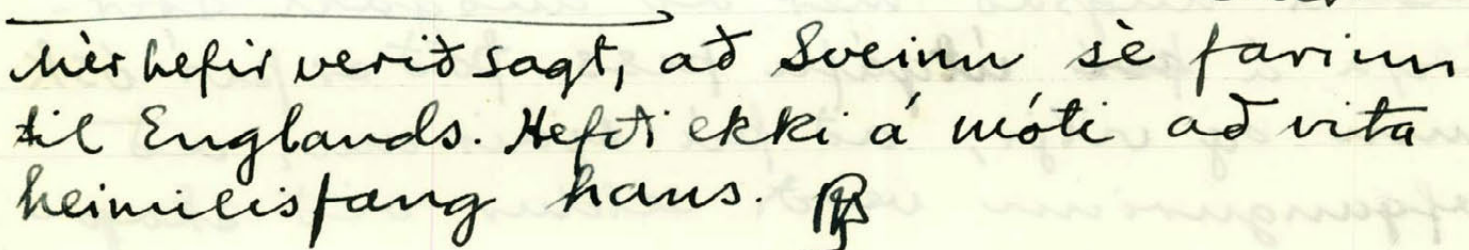 Mèr hefir verið sagt, að Sveinn sè farinn
til Englands. Hefði ekki á móti að vita
heimilisfang hans.